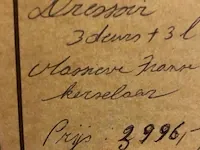 Dressoir
3 deurs + 3 l
Massieve Franse
kerselaar
Prijs : 3 996,-